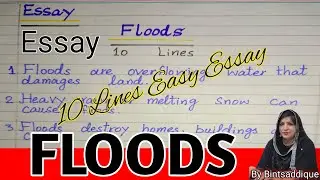 Essay
Floods
Essay
10 Lines
10 Lines Easy Essay
1. Floods are overflowing water that
damages land.
2. Heavy melting snow can
cause
3. Floods destroy homes, buildings
FLOODS
By Bintsaddique